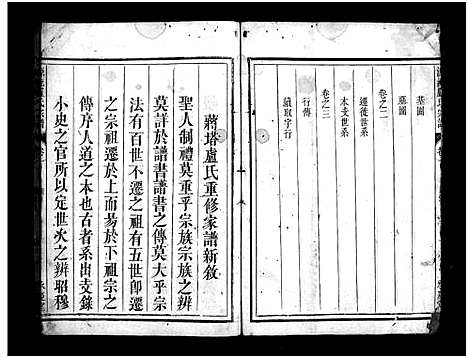 墓圖
墓圖
卷之二
遷徙世系
本支世系
卷之三
行傳
續取字行
蔣塔盧氏重修家譜新敘
聖人制禮莫重乎宗族宗族之辨
莫詳於譜書譜書之傳莫大乎宗
法有百世不遷之祖有五世即遷
之宗祖遷於上而易於下祖宗之
傳序人道之本也古者系出支錄
小史之官所以定世次之辨昭穆